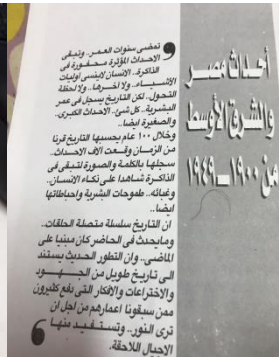 أحداث مصر
والشرق الأوسط
من ١٩٠٠ـ١٩٤٩
تمضى سنوات العمر.. وتبقى
الاحداث المؤثرة محفورة فى
الذاكرة. الانسان لاينسى أوليات
الأشياء.. ولا آخرها.. ولا لحظة
التحول. لكن التاريخ يسجل فى عمر
البشرية.. كل شئ.. الاحداث الكبرى..
والصغيرة ايضا..
وخلال ١٠٠ عام يحسبها التاريخ قرنا
من الزمان وقعت الاف الاحداث..
سجلها بالكلمة والصورة لتبقى فى
الذاكرة شاهدا على ذكاء الإنسان..
وغبائه.. طموحات البشرية واحباطاتها
ايضا..
ان التاريخ سلسلة متصلة الحلقات..
ومايحدث فى الحاضر كان مبنيا على
الماضى.. وان التطور الحديث يستند
الى تاريخ طويل من الجهود
والاختراعات والأفكار التى دفع كثيرون
ممن سبقونا اعمارهم من اجل ان
ترى النور.. وتستفيد منها
الاجيال اللاحقة.